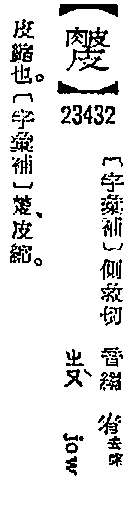 23432
〔字彙補〕側救切 音縐 宥去聲
ㄓㄡˋ jow
皮縮也。〔字彙補〕、皮縮。